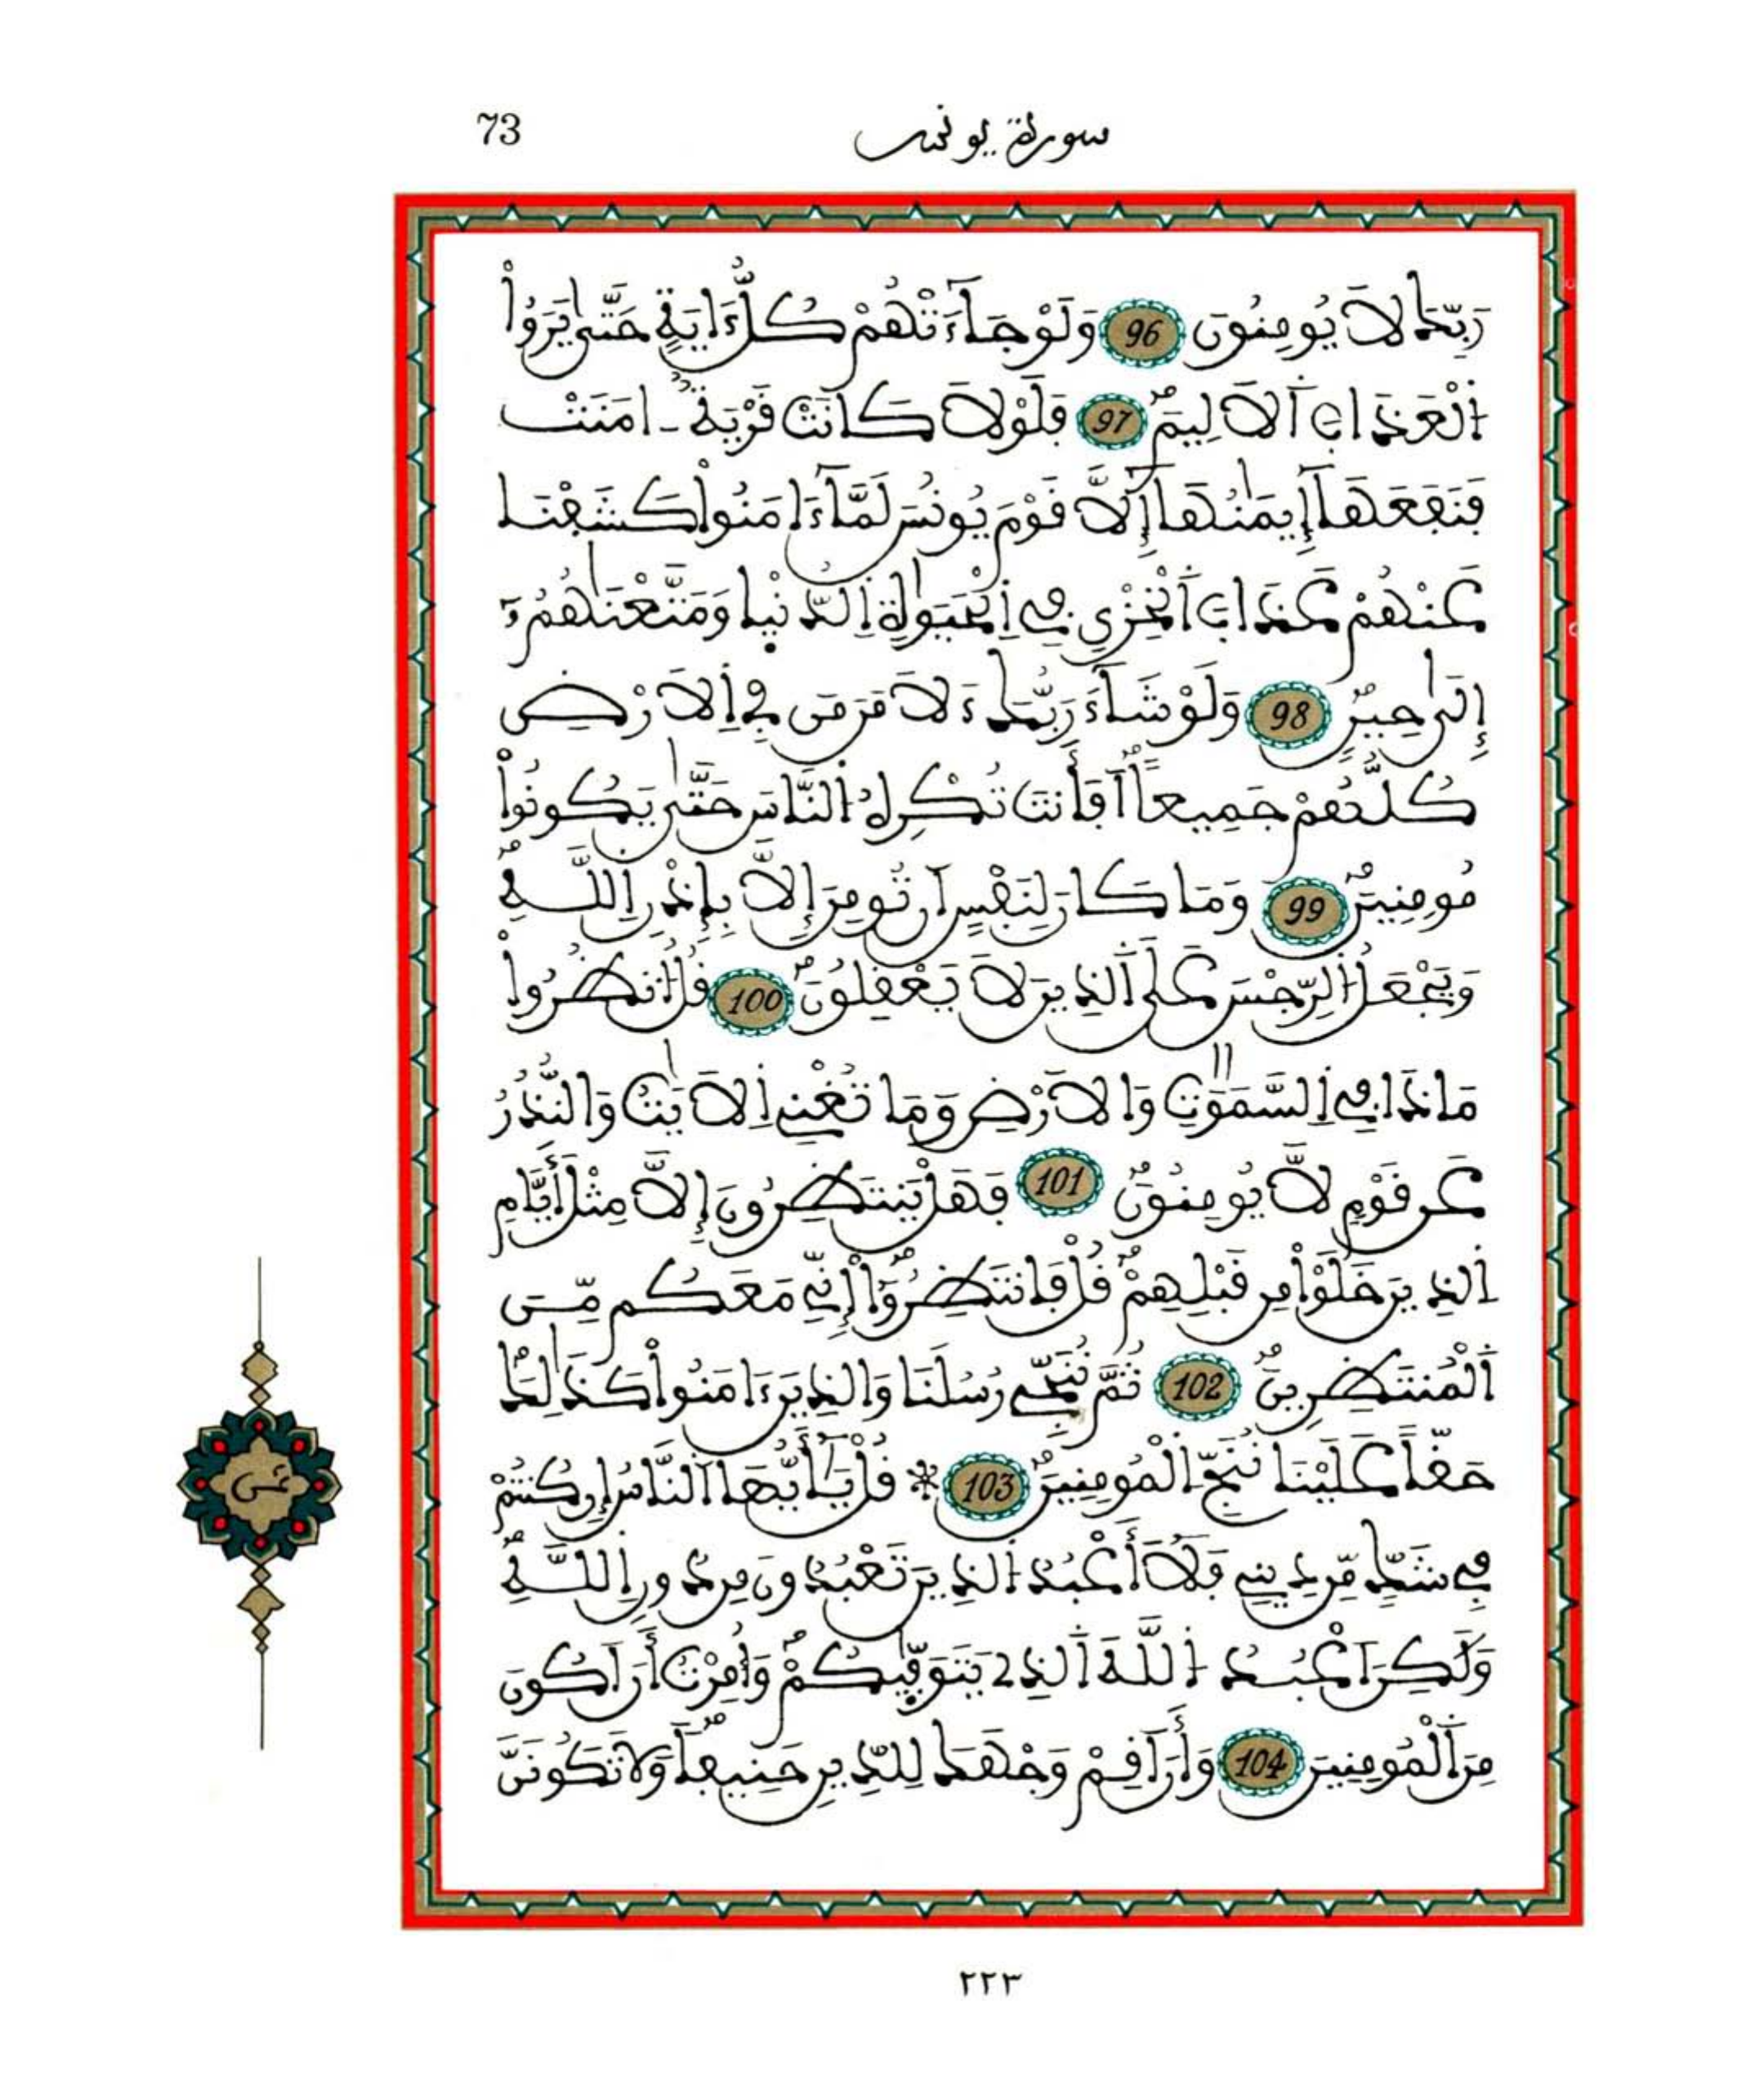 73
سورة يونس
رَبِّكَ لَا يُومِنُونَ 96 وَلَوْ جَآءَتْهُمْ كُلُّ ءَايَةٍ حَتَّىٰ يَرَوُاْ
اُ۬لْعَذَابَ اَ۬لَالِيمَۖ 97 فَلَوْلَا كَانَتْ قَرْيَةٌ ـ امَنَتْ
فَنَفَعَهَآ إِيمَٰنُهَآ إِلَّا قَوْمَ يُونُسَ لَمَّآ ءَامَنُواْ كَشَفْنَا
عَنْهُمْ عَذَابَ اَ۬لْخِزْيِ فِے اِ۬لْحَيَوٰةِ اِ۬لدُّنْيَا وَمَتَّعْنَٰهُمُۥٓ
إِلَىٰ حِينٖۖ 98 وَلَوْ شَآءَ رَبُّكَ ءَلَامَنَ مَن فِي اِ۬لَارْضِ
كُلُّهُمْ جَمِيعاًۖ اَفَأَنتَ تُكْرِهُ اُ۬لنَّاسَ حَتَّىٰ يَكُونُواْ
مُومِنِينَۖ 99 وَمَا كَانَ لِنَفْسٍ اَن تُومِنَ إِلَّا بِإِذْنِ اِ۬للَّهِۖ
وَيَجْعَلُ اُ۬لرِّجْسَ عَلَى اَ۬لذِينَ لَا يَعْقِلُونَۖ 100 قُلُ اُ۟نظُرُواْ
مَاذَا فِے اِ۬لسَّمَٰوَٰتِ وَالَارْضِ وَمَا تُغْنِے اِ۬لَايَٰتُ وَالنُّذُرُ
عَن قَوْمٖ لَّا يُومِنُونَۖ 101 فَهَلْ يَنتَظِرُونَ إِلَّا مِثْلَ أَيَّامِ
اِ۬لذِينَ خَلَوْاْ مِن قَبْلِهِمْۖ قُلْ فَانتَظِرُوٓاْ إِنِّے مَعَكُم مِّنَ
اَ۬لْمُنتَظِرِينَۖ 102 ثُمَّ نُنَجِّے رُسُلَنَا وَالذِينَ ءَامَنُواْ كَذَٰلِكَۖ
حَقّاً عَلَيْنَا نُنَجِّ اِ۬لْمُومِنِينَۖ 103 * قُلْ يَٰٓأَيُّهَا اَ۬لنَّاسُ إِن كُنتُمْ
فِے شَكّٖ مِّن دِينِے فَلَآ أَعْبُدُ اُ۬لذِينَ تَعْبُدُونَ مِن دُونِ اِ۬للَّهِۖ
وَلَٰكِنَ اَعْبُدُ اُ۬للَّهَ اَ۬لذِے يَتَوَفّٜىٰكُمْۖ وَأُمِرْتُ أَنَ اَكُونَ
مِنَ اَ۬لْمُومِنِينَ 104 وَأَنَ اَقِمْ وَجْهَكَ لِلدِّينِ حَنِيفاًۖ وَلَا تَكُونَنَّ
ثمن
٢٢٣